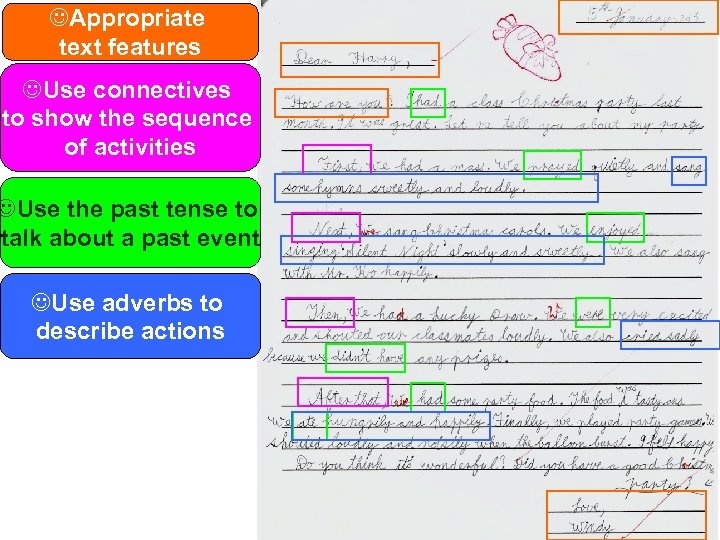 ☺Appropriate
text features
☺Use connectives
to show the sequence
of activities
☺Use the past tense to
talk about a past event
☺Use adverbs to
describe actions
15th January 2003
Dear Harry,
How are you? I had a class Christmas party last
month. It was great. Let me tell you about my party.
First, we had a mass. We prayed quietly and sang
some hymns sweetly and loudly.
Next, we sang Christmas carols. We enjoyed
singing Silent Night slowly and sweetly. We also sang
with Mr. Ko happily.
Then, we had a Lucky Draw. We were very excited
and shouted our classmates loudly. We also cried sadly
because we didn't have any prizes.
After that, we had some party food. The food was tasty and
we ate hungrily and happily. Finally, we played party games. We
shouted loudly and noisily when the balloon burst. I felt happy.
Do you think it's wonderful? Did you have a good Christmas
party?
Love,
Windy